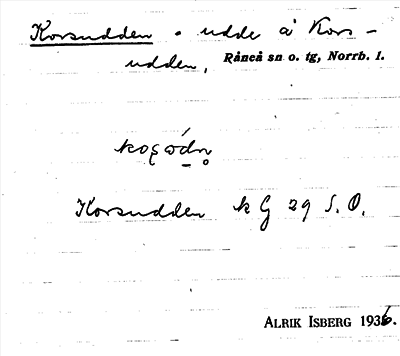 Korsudden • udde å Kors-
udden, Råneå sn o. tg, Norrb. l.
Korsudden k G 29 S.O.
ALRIK ISBERG 1936.